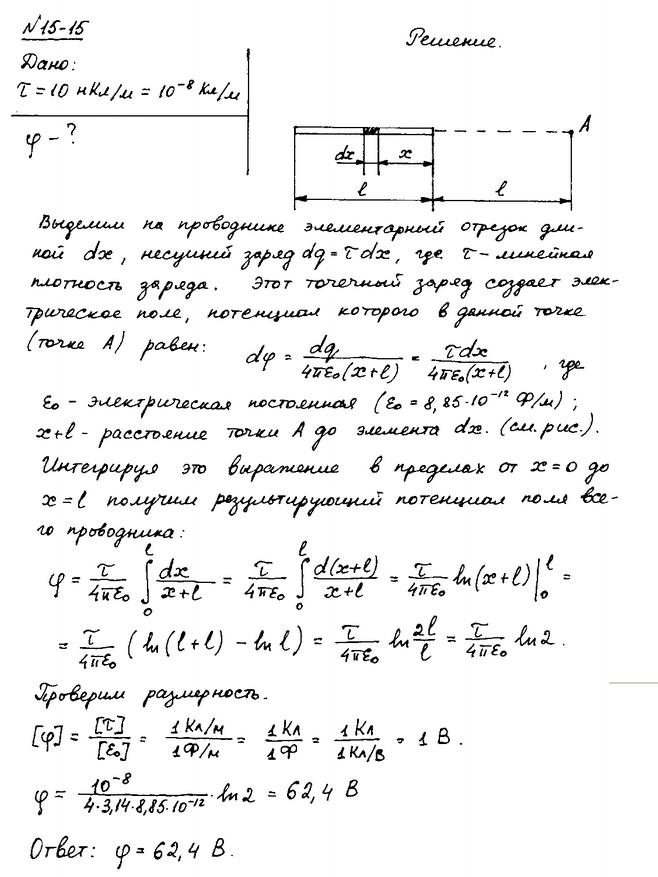 №15-15
Решение.
Дано:
τ = 10 нКл/м = 10⁻⁸ Кл/м
φ - ?
A
dx x
l l
Выделим на проводнике элементарный отрезок дли-
ной dx, несущий заряд dq = τdx, где τ - линейная
плотность заряда. Этот точечный заряд создает элек-
трическое поле, потенциал которого в данной точке
(точке А) равен: dφ = dq/(4πε₀(x+l)) = τdx/(4πε₀(x+l)), где
ε₀ - электрическая постоянная (ε₀ = 8,85·10⁻¹² Ф/м);
x+l - расстояние точки А до элемента dx. (см. рис.).
Интегрируя это выражение в пределах от x = 0 до
x = l получим результирующий потенциал поля все-
го проводника:
φ = τ/(4πε₀) ∫₀ˡ dx/(x+l) = τ/(4πε₀) ∫₀ˡ d(x+l)/(x+l) = τ/(4πε₀) ln(x+l)|₀ˡ =
= τ/(4πε₀) (ln(l+l) - ln l) = τ/(4πε₀) ln 2l/l = τ/(4πε₀) ln 2.
Проверим размерность.
[φ] = [τ]/[ε₀] = 1 Кл/м/1 Ф/м = 1 Кл/1 Ф = 1 Кл/1 Кл/В = 1 В.
φ = 10⁻⁸/(4·3,14·8,85·10⁻¹²) · ln 2 = 62,4 В
Ответ: φ = 62,4 В.